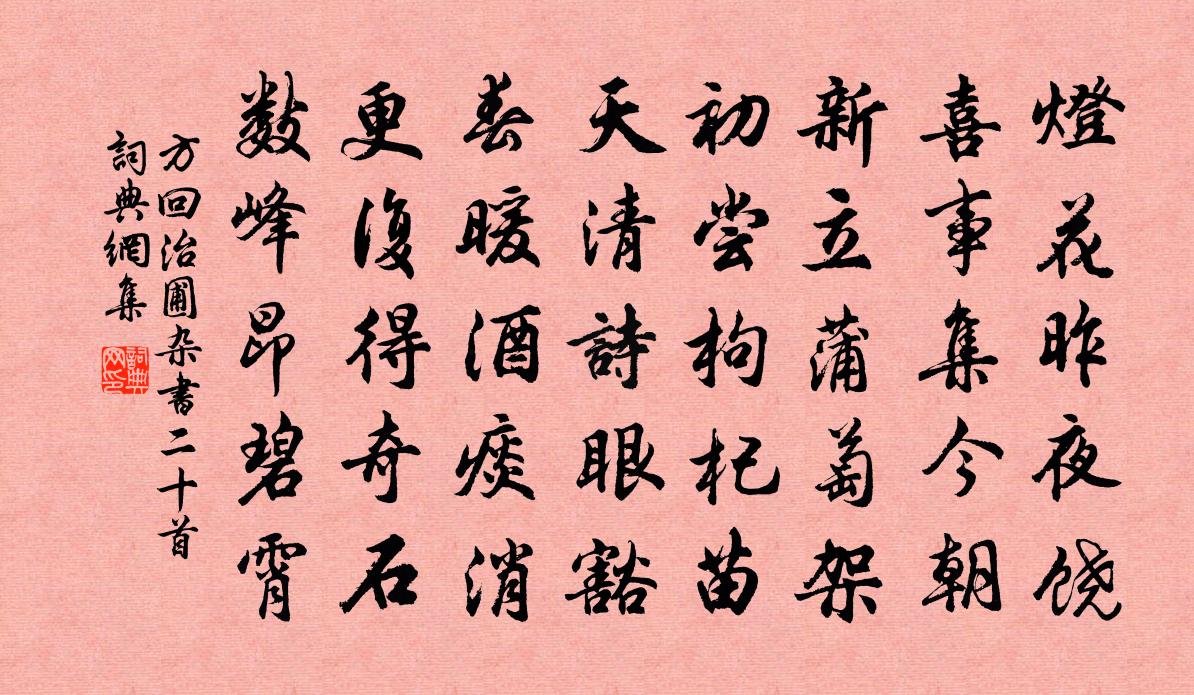 燈花昨夜饶
喜事集今朝
新立蒲萄架
初尝枸杞苗
天清詩眼豁
春暖酒痰消
更復得奇石
数峰昂碧霄
方回治圃杂書二十首
詞典網集
詞典網印